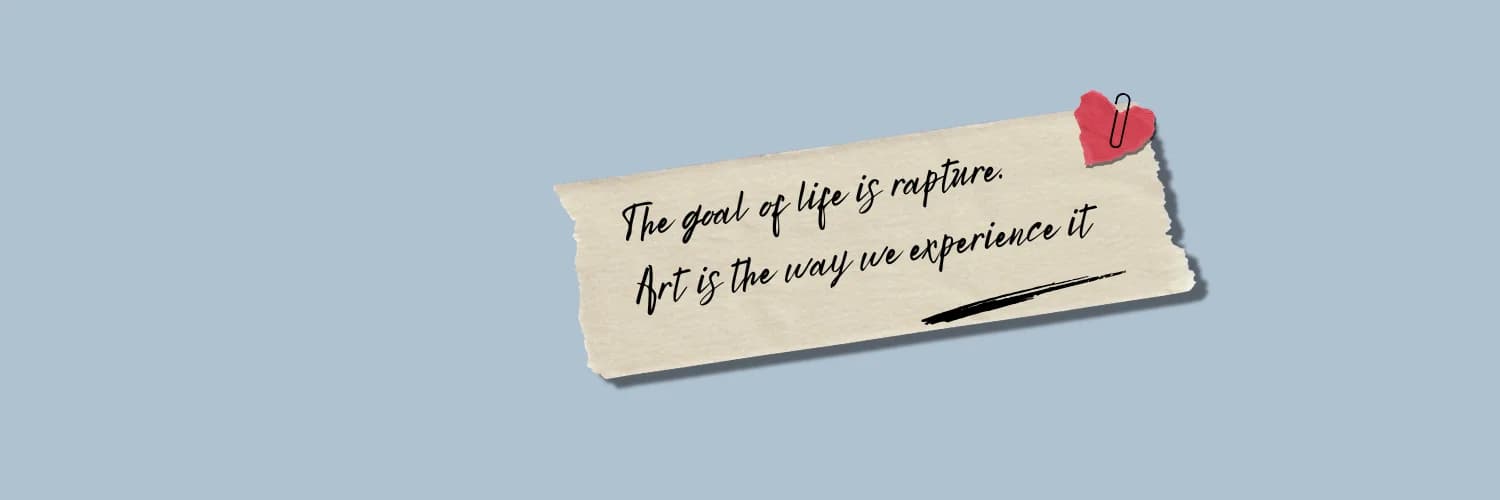 The goal of life is rapture.
Art is the way we experience it